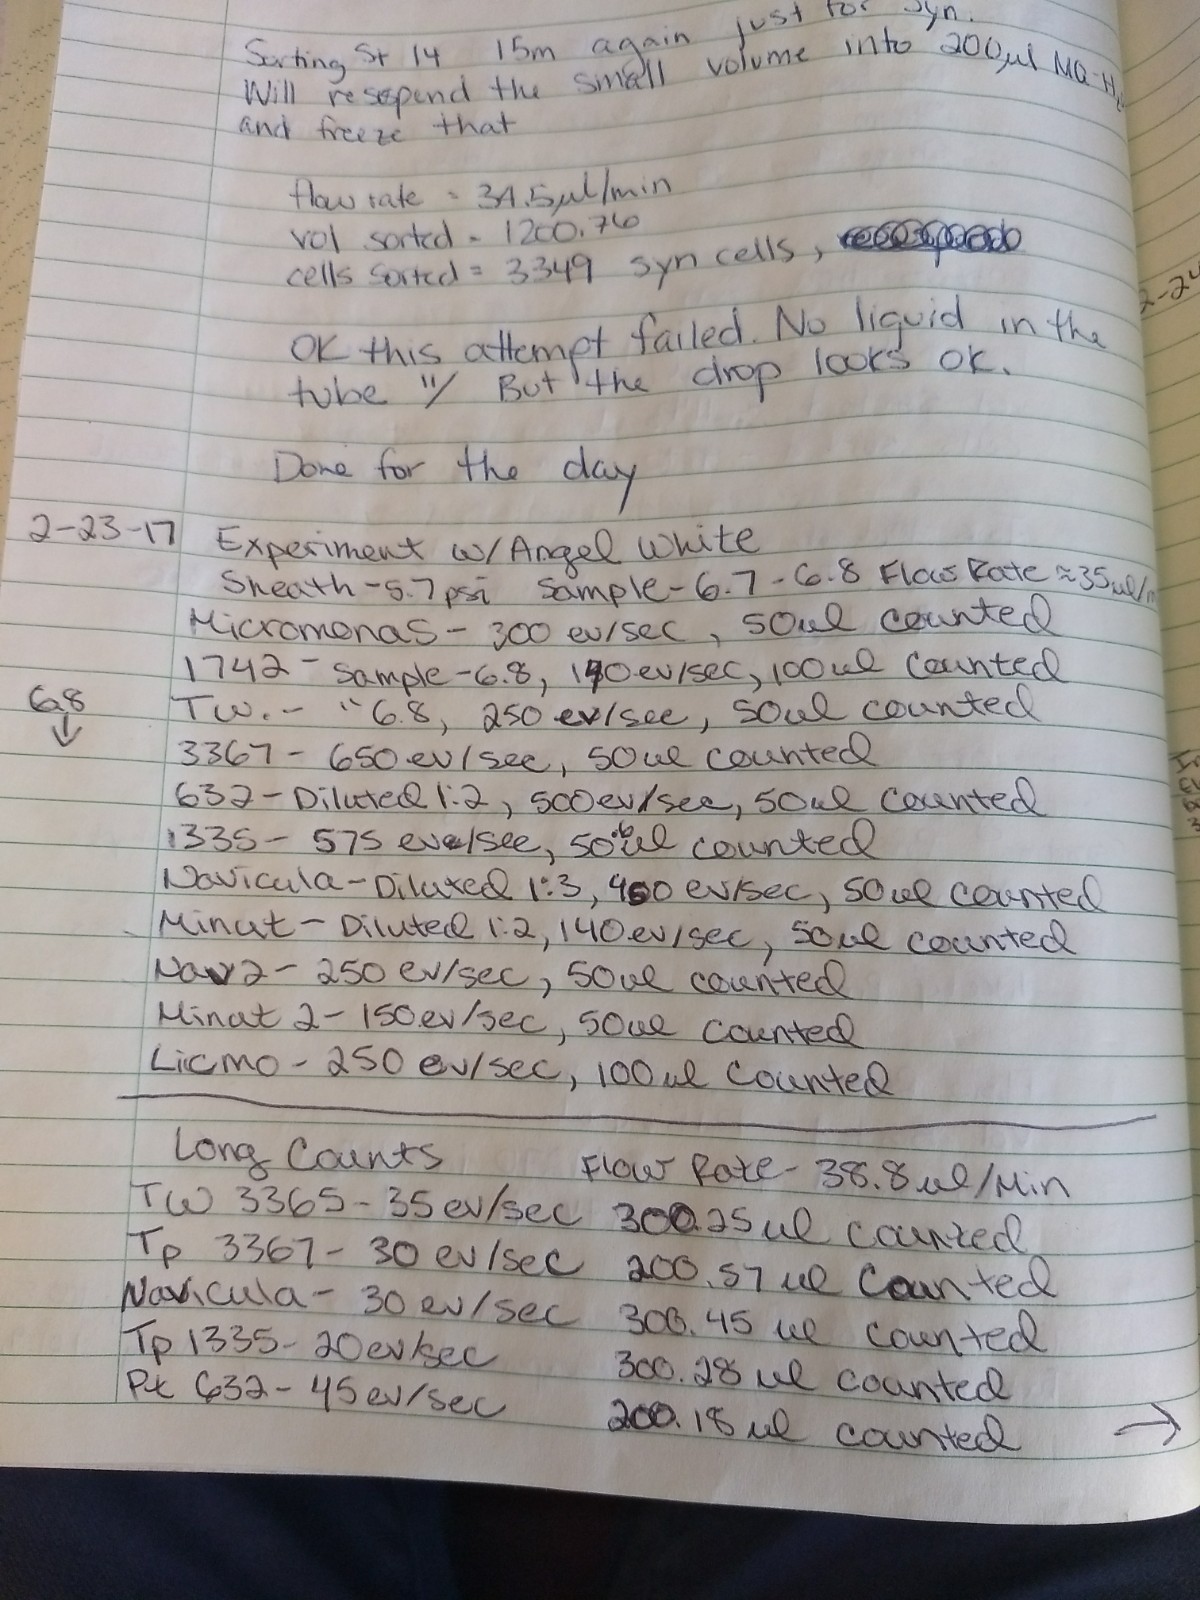 Sorting St 14 15m again just for Syn.
Will resspend the small volume into 200µl MQ-H2
and freeze that
flow rate = 34.5µl/min
vol sorted = 1200.76
cells sorted = 3349 syn cells,
OK this attempt failed. No liquid in the
tube "/ But the drop looks ok.
Done for the day
2-23-17 Experiment w/ Angel White
Sheath - 5.7 psi Sample - 6.7 - 6.8 Flow Rate ≈ 35ul/m
Micromonas - 300 ev/sec, 50ul counted
1742 - Sample - 6.8, 190 ev/sec, 100ul counted
6.8 ↓ TW. - " 6.8, 250 ev/sec, 50ul counted
3367 - 650 ev/sec, 50ul counted
632 - Diluted 1:2, 500 ev/sec, 50ul counted
1335 - 575 eve/sec, 50ul counted
Navicula - Diluted 1:3, 400 ev/sec, 50ul counted
Minut - Diluted 1:2, 140 ev/sec, 50ul counted
Nav 2 - 250 ev/sec, 50ul counted
Minut 2 - 150 ev/sec, 50ul counted
Licmo - 250 ev/sec, 100ul counted
Long Counts Flow Rate - 38.8 ul/Min
TW 3365 - 35 ev/sec 300.25 ul counted
Tp 3367 - 30 ev/sec 200.57 ul counted
Navicula - 30 ev/sec 300.45 ul counted
Tp 1335 - 20 ev/sec 300.28 ul counted
Pt 632 - 45 ev/sec 200.18 ul counted →
2-24